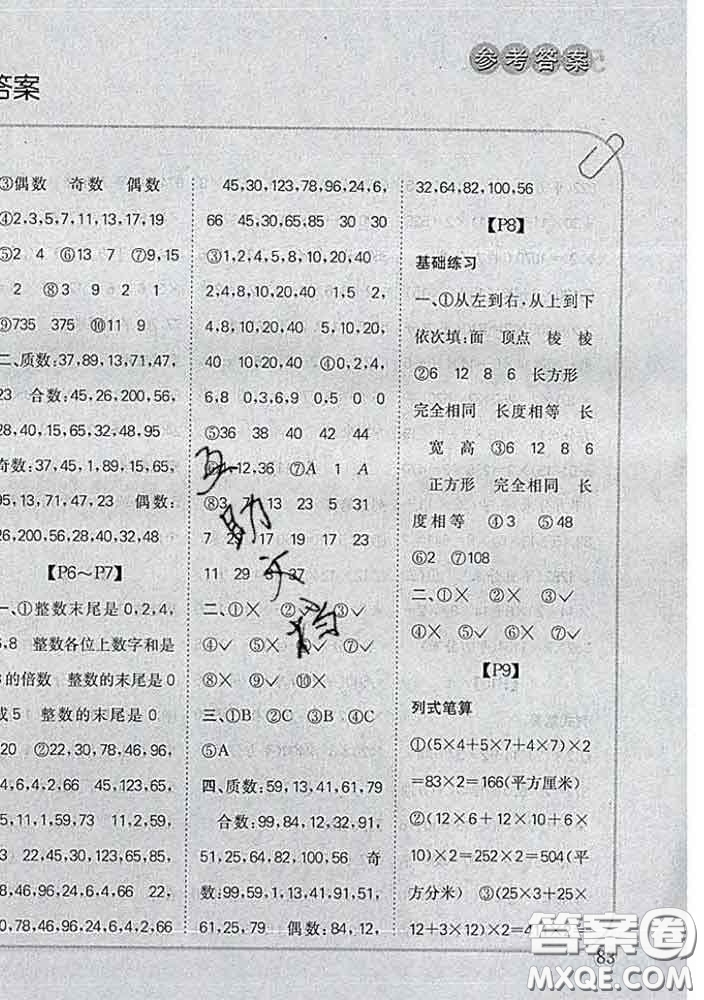 参考答案
答案
③偶数 奇数 偶数
④2,3,5,7,11,13,17,19
⑤2 4 ⑥13 7 ⑦9,15
2 ⑧3 9 2 1
⑨735 375 ⑩11 9
二、质数:37,89,13,71,47,
23 合数:45,26,200,56,
28,40,15,65,32,48,95
奇数:37,45,1,89,15,65,
95,13,71,47,23 偶数:
26,200,56,28,40,32,48
【P6～P7】
一、①整数末尾是0,2,4,
6,8 整数各位上数字和是
3的倍数 整数的末尾是0
或5 整数的末尾是0
20 ②22,30,78,46,96,
24,4,2,66 45,123,65,
11,1,59,73 11,2,59,
73 22,45,30,123,65,85,
78,46,96,24,6,4,66 22,
30,78,46,96,24,6,4,2,66
45,30,123,78,96,24,6,
66 45,30,65,85 30 30
③1,2,4,5,8,10,20,40
2,4,8,10,20,40 1,5 2,
4,8,10,20,40 5,10,20,
40 10,20,40 ④0,2,4,
6,8 0,3,6,9 0,5 0
⑤36 38 40 42 44
12,36 ⑦A 1 A
⑧3 7 13 23 5 31
7 23 17 19 17 23
11 29 37
二、①× ②✓ ③✓
④✓ ⑤× ⑥× ⑦✓
⑧× ⑨✓ ⑩×
三、①B ②C ③C ④C
⑤A
四、质数:59,13,41,61,79
合数:99,84,12,32,91,
51,25,64,82,100,56 奇
数:99,59,1,13,41,91,51,
61,25,79 偶数:84,12,
32,64,82,100,56
【P8】
基础练习
一、①从左到右,从上到下
依次填:面 顶点 棱 棱
②6 12 8 6 长方形
完全相同 长度相等 长
宽 高 ③6 12 8 6
正方形 完全相同 长
度相等 ④3 ⑤48
⑥2 ⑦108
二、①× ②× ③✓
④× ⑤✓ ⑥✓
【P9】
列式笔算
①(5×4+5×7+4×7)×2
=83×2=166(平方厘米)
②(12×6+12×10+6×
10)×2=252×2=504(平
方分米) ③(25×3+25×
12+3×12)×2=411×2=
83
互助文档
答案圈
MXQE.COM